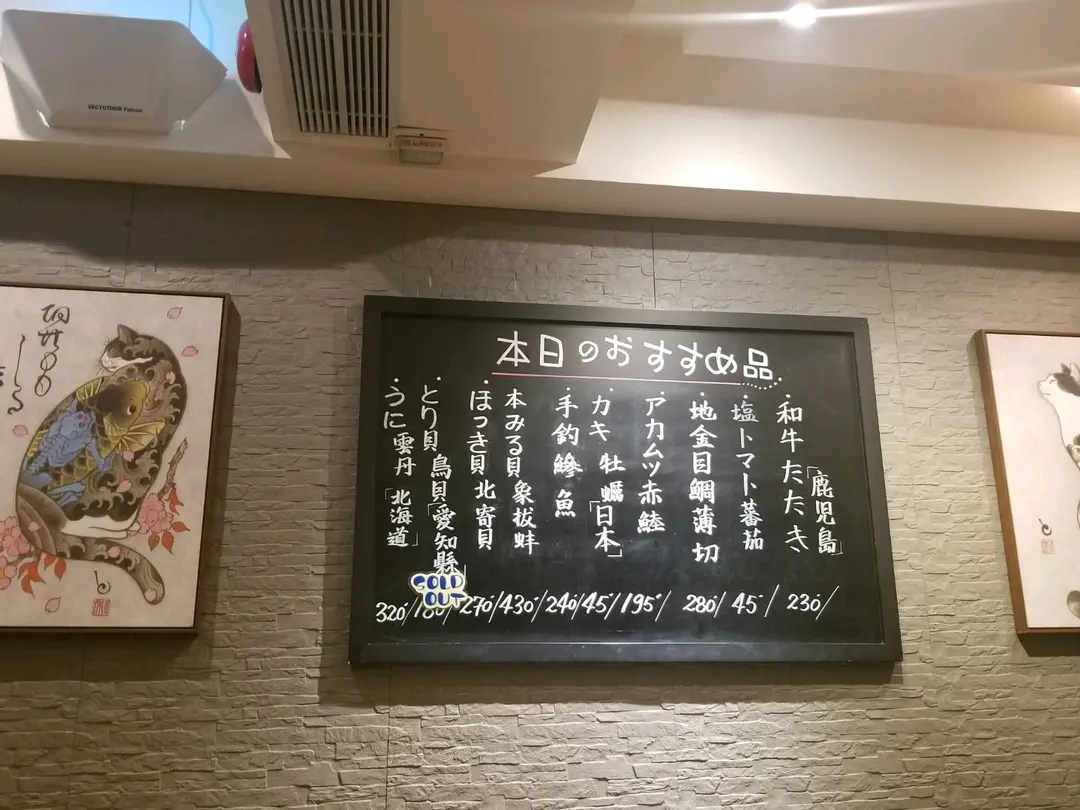 VECTOTHOR Falcon
本日のおすすめ品
・和牛たたき「鹿児島」
230/
・塩トマト蕃茄
45/
・地金目鯛薄切
280/
・アカムツ赤鯥
195/
・カキ 牡蠣「日本」
45/
・手釣鰺魚
240/
本みる貝象拔蚌
430/
・ほっき貝 北寄貝
270/
・とり貝 鳥貝「愛知縣」
180/
SOLD
OUT
・うに 雲丹「北海道」
320/